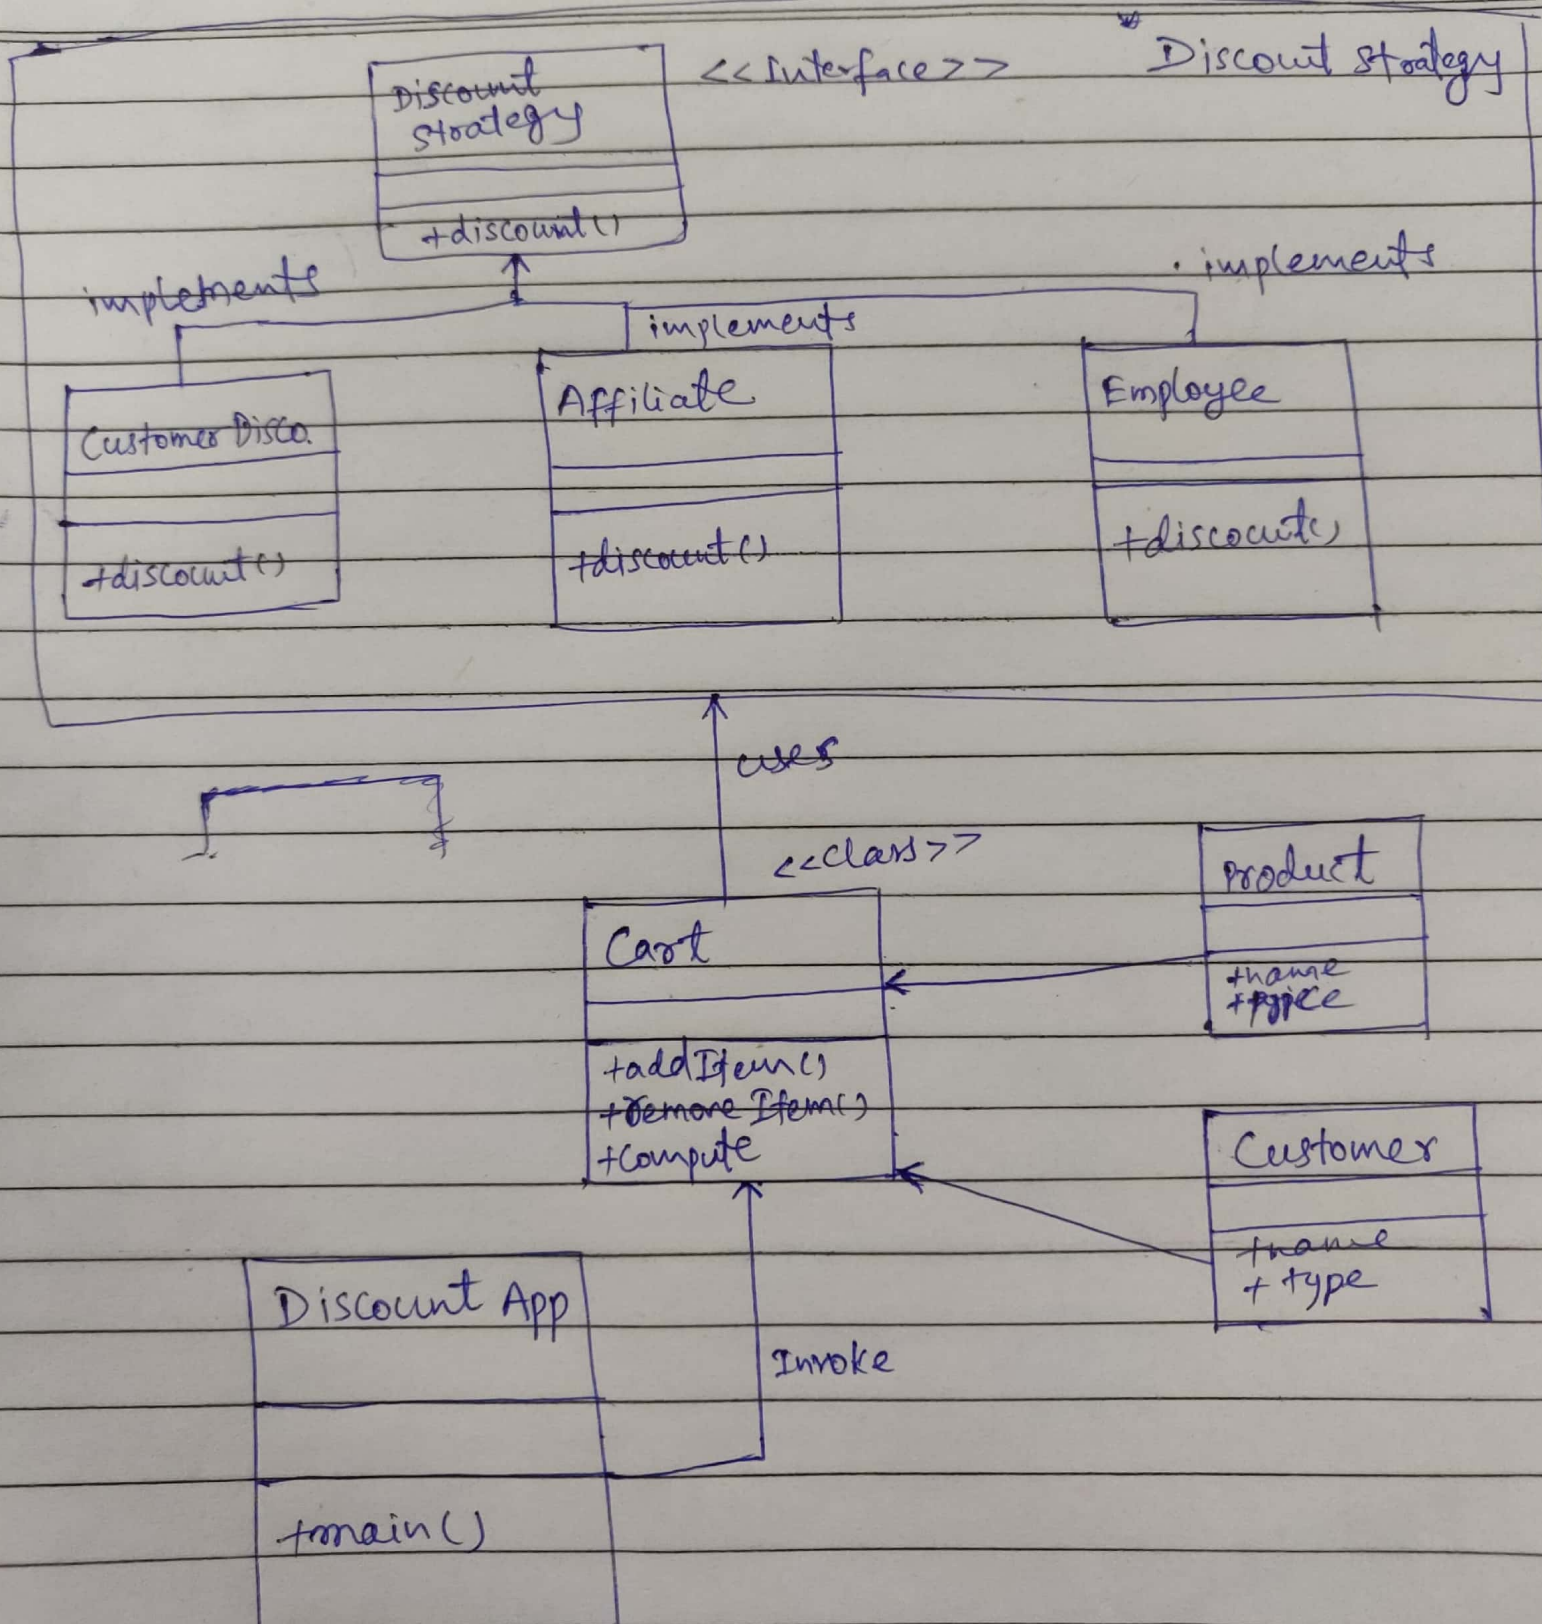 <<Interface>>
Discount Strategy
Discount
Strategy
+discount()
implements
implements
implements
Customer Disco.
+discount()
Affiliate
+discount()
Employee
+discount()
uses
<<class>>
Cart
+addItem()
+remove Item()
+Compute
Product
+name
+price
Customer
+name
+ type
Discount App
+main()
Invoke